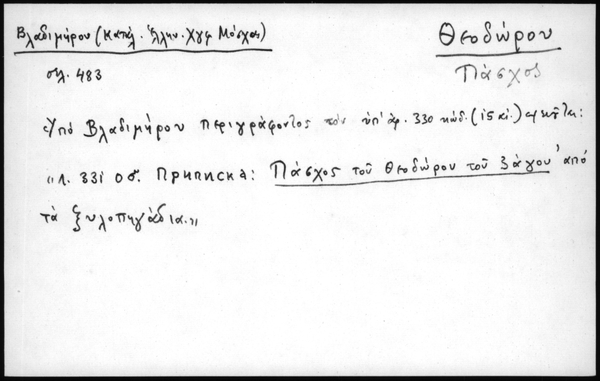 Βλαδιμήρου (Κατάλ. Ἑλλην. Χγφ Μόσχας)
Θεοδώρου
Πάσχος
σελ. 483
Ὑπὸ Βλαδιμήρου περιγράφοντος τὸν ὑπ' ἀρ. 330 κώδ. (ις αἰ.)
"л. 331 об. Приписка: Πάσχος τοῦ Θεοδώρου τοῦ ζάγου ἀπό
τὰ ξυλοπηγάδια."